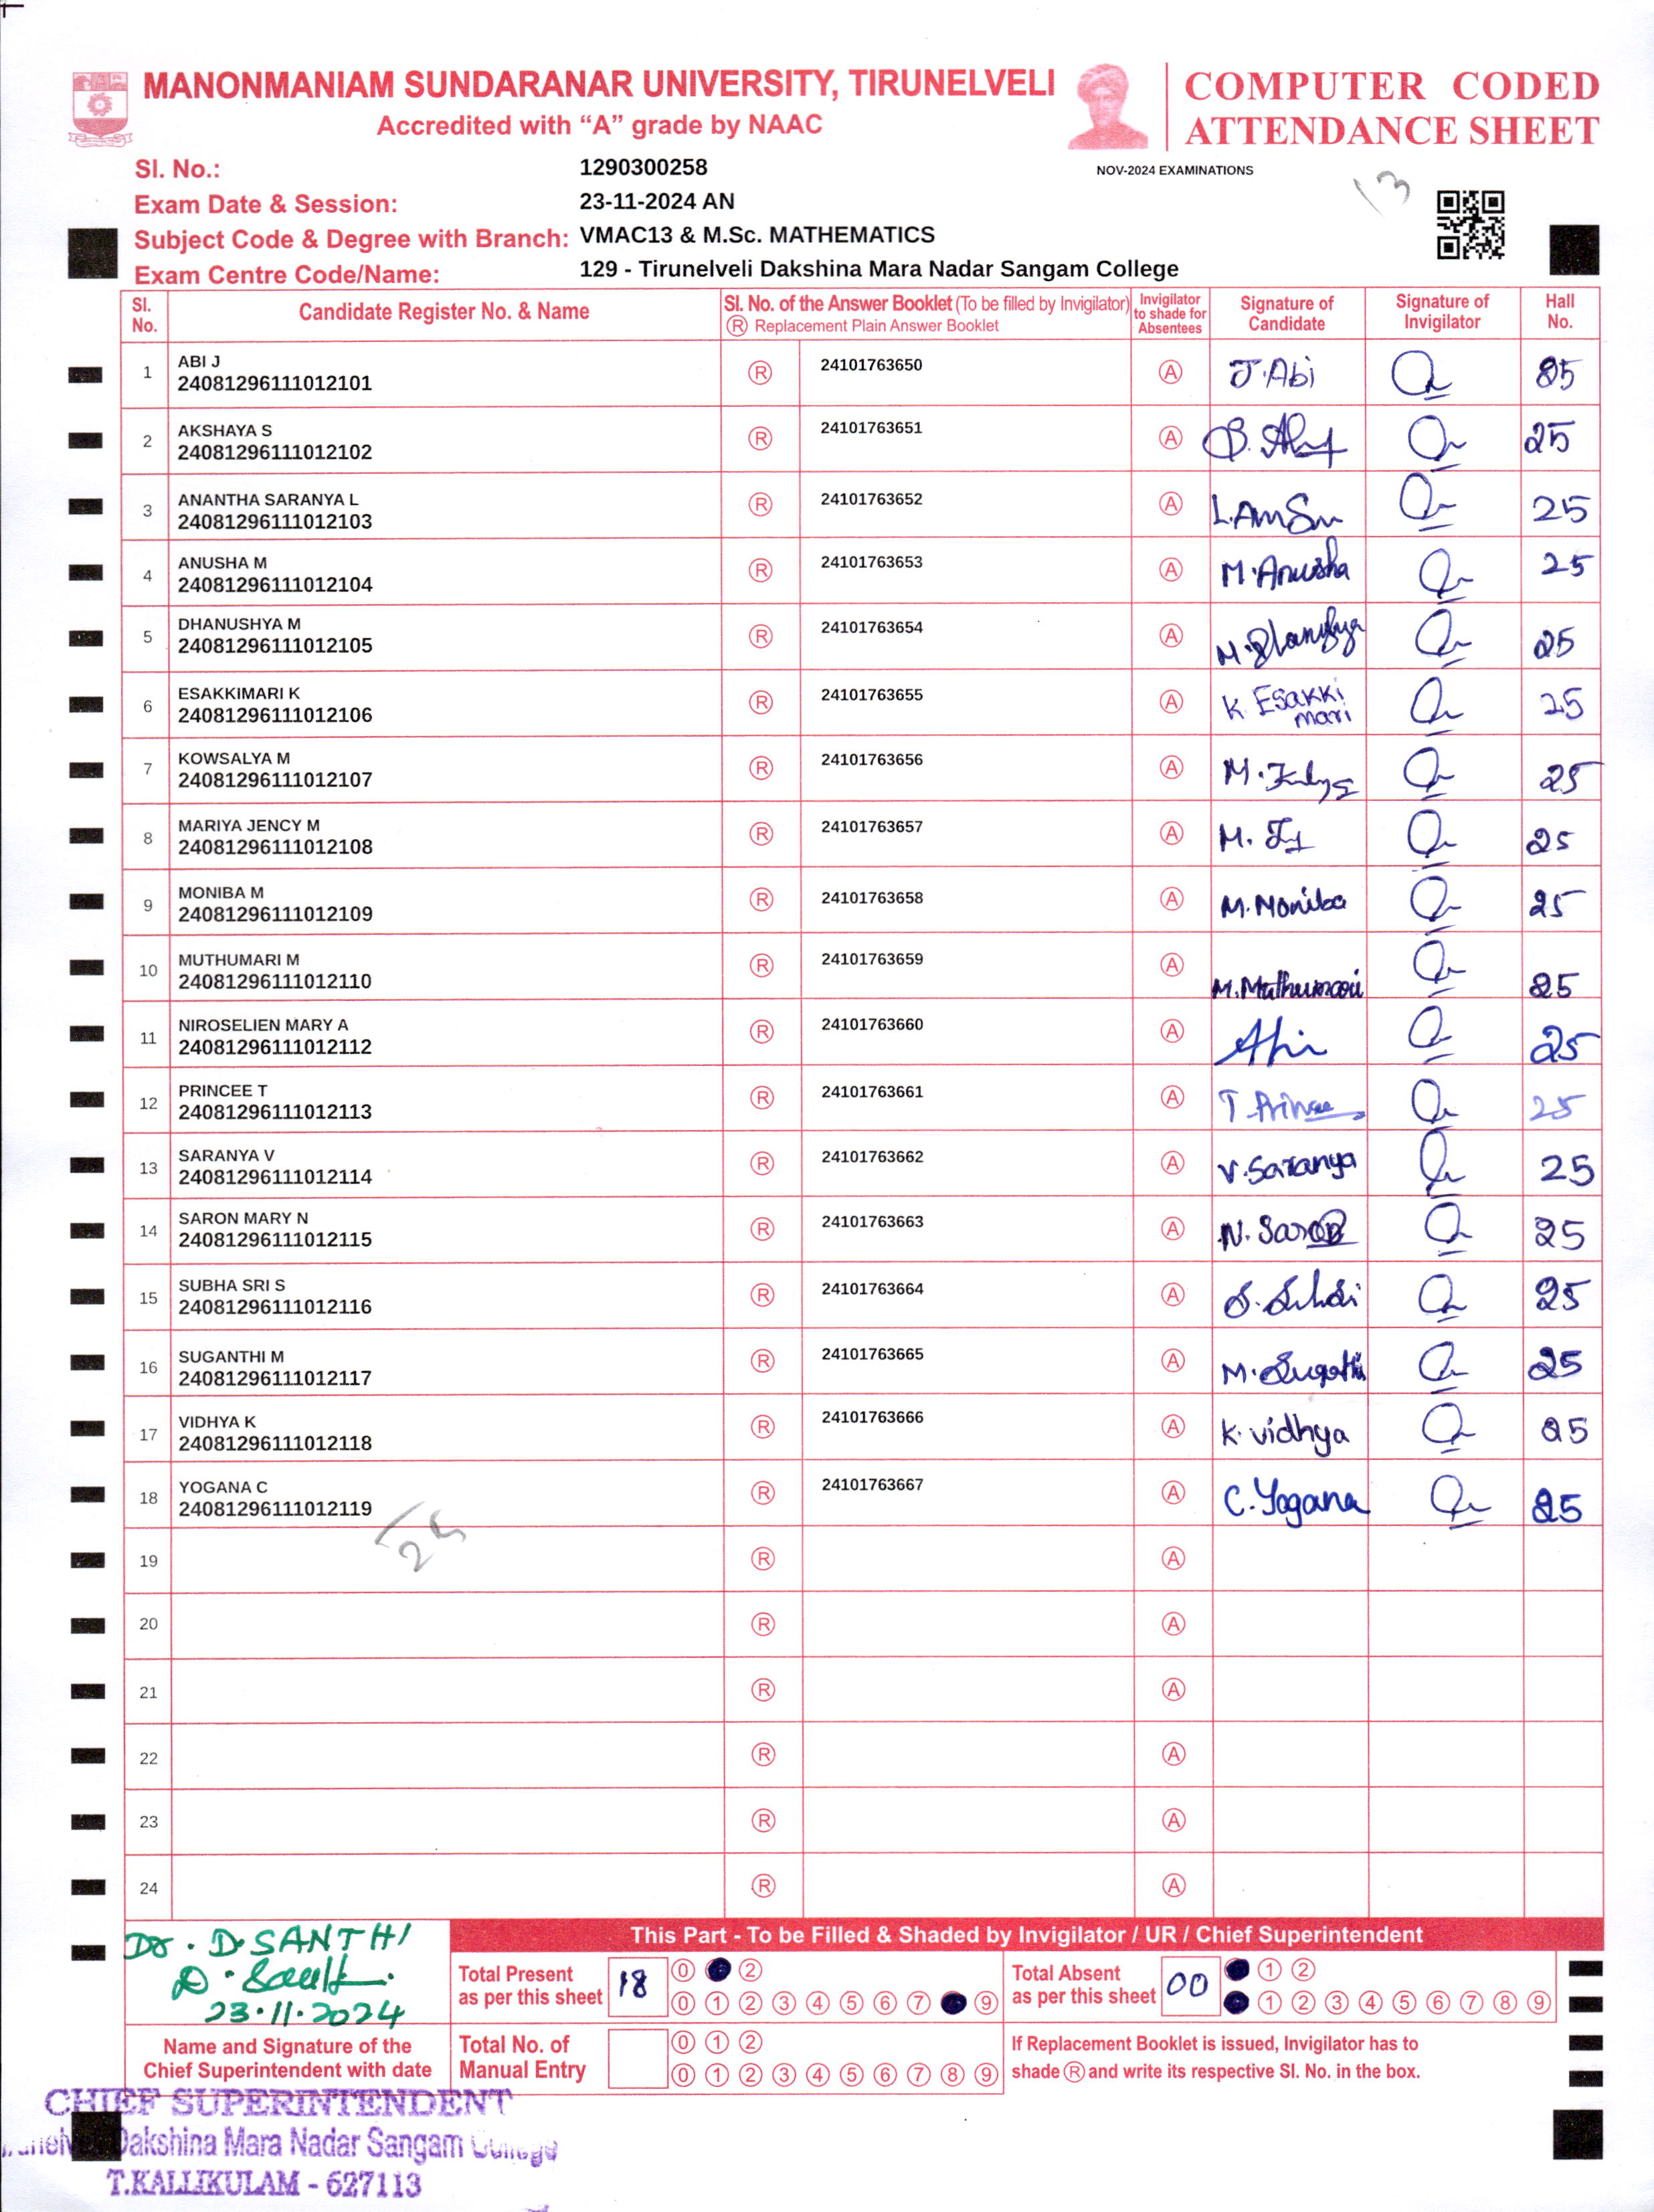 MANONMANIAM SUNDARANAR UNIVERSITY, TIRUNELVELI
Accredited with “A” grade by NAAC
COMPUTER CODED
ATTENDANCE SHEET
NOV-2024 EXAMINATIONS
13
Sl. No.: 1290300258
Exam Date & Session: 23-11-2024 AN
Subject Code & Degree with Branch: VMAC13 & M.Sc. MATHEMATICS
Exam Centre Code/Name: 129 - Tirunelveli Dakshina Mara Nadar Sangam College
Sl. No. Candidate Register No. & Name Sl. No. of the Answer Booklet (To be filled by Invigilator) Ⓡ Replacement Plain Answer Booklet Invigilator to shade for Absentees Signature of Candidate Signature of Invigilator Hall No.
1 ABI J 24081296111012101 Ⓡ 24101763650 Ⓐ J.Abi 25
2 AKSHAYA S 24081296111012102 Ⓡ 24101763651 Ⓐ 25
3 ANANTHA SARANYA L 24081296111012103 Ⓡ 24101763652 Ⓐ 25
4 ANUSHA M 24081296111012104 Ⓡ 24101763653 Ⓐ M.Anusha 25
5 DHANUSHYA M 24081296111012105 Ⓡ 24101763654 Ⓐ 25
6 ESAKKIMARI K 24081296111012106 Ⓡ 24101763655 Ⓐ K. Esakki mari 25
7 KOWSALYA M 24081296111012107 Ⓡ 24101763656 Ⓐ 25
8 MARIYA JENCY M 24081296111012108 Ⓡ 24101763657 Ⓐ 25
9 MONIBA M 24081296111012109 Ⓡ 24101763658 Ⓐ M.Moniba 25
10 MUTHUMARI M 24081296111012110 Ⓡ 24101763659 Ⓐ M.Muthumari 25
11 NIROSELIEN MARY A 24081296111012112 Ⓡ 24101763660 Ⓐ 25
12 PRINCEE T 24081296111012113 Ⓡ 24101763661 Ⓐ T Princee 25
13 SARANYA V 24081296111012114 Ⓡ 24101763662 Ⓐ V.Saranya 25
14 SARON MARY N 24081296111012115 Ⓡ 24101763663 Ⓐ N. Saron 25
15 SUBHA SRI S 24081296111012116 Ⓡ 24101763664 Ⓐ 25
16 SUGANTHI M 24081296111012117 Ⓡ 24101763665 Ⓐ 25
17 VIDHYA K 24081296111012118 Ⓡ 24101763666 Ⓐ K. vidhya 25
18 YOGANA C 24081296111012119 Ⓡ 24101763667 Ⓐ C.Yogana 25
25
19 Ⓡ Ⓐ
20 Ⓡ Ⓐ
21 Ⓡ Ⓐ
22 Ⓡ Ⓐ
23 Ⓡ Ⓐ
24 Ⓡ Ⓐ
Dr. D.SANTHI
23.11.2024
Name and Signature of the
Chief Superintendent with date
This Part - To be Filled & Shaded by Invigilator / UR / Chief Superintendent
Total Present as per this sheet 18
0 2
0 1 2 3 4 5 6 7 9
Total Absent as per this sheet 00
1 2
1 2 3 4 5 6 7 8 9
Total No. of Manual Entry
0 1 2
0 1 2 3 4 5 6 7 8 9
If Replacement Booklet is issued, Invigilator has to
shade Ⓡ and write its respective Sl. No. in the box.
CHIEF SUPERINTENDENT
Dakshina Mara Nadar Sangam College
T.KALLIKULAM - 627113